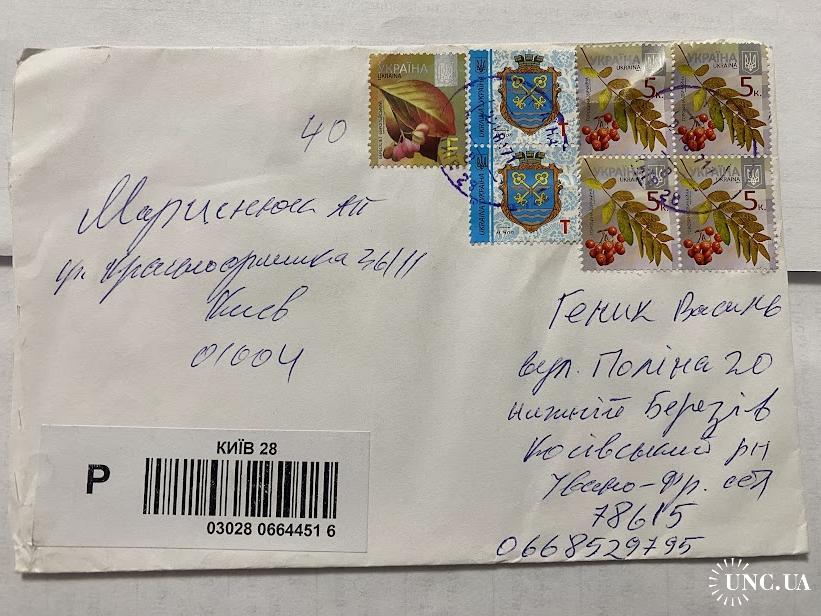 40
УКРАЇНА
UKRAINA
УКРАЇНА
UKRAINA
5к.
УКРАЇНА
UKRAINA
5к.
УКРАЇНА
UKRAINA
5к.
УКРАЇНА
UKRAINA
5к.
UKRAINA УКРАЇНА
T
UKRAINA УКРАЇНА
T
ул 36/11
Киев
01004
Геник Василь
вул. Поліна 20
нижній Березів
Косівський рн
Івано-Фр. обл
78615
0668529795
КИЇВ 28
P
03028 0664451 6
UNC.UA